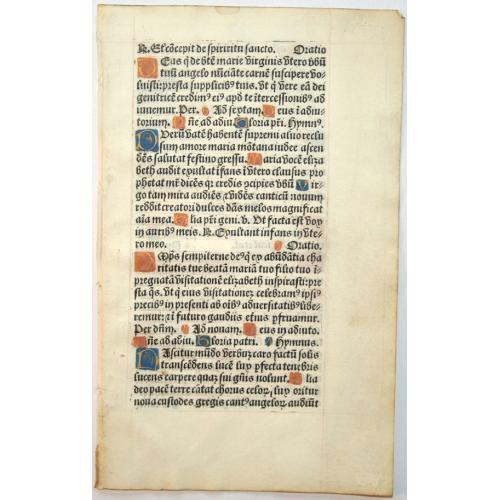 R. Et cõcepit de spiritu sancto. Oratio
Eus q̃ de btẽ marie virginis vtero vbũ
tuũ angelo nũciate carnẽ suscipere vo-
luisti: presta supplicibꝰ tuis. vt q̃ vere eã dei
genitricẽ credimꝰ eiꝰ apd̃ te ĩtercessionibꝰ ad
iuuemur. Per. Ad septam. Eus ĩ adiu-
torium. ñe ad adiu. Gloria pr̃i. Hymnꝰ.
Veru vatẽ habentẽ supremi aluo reclu
sum amore maria mõtana iudee ascen
dẽs salutat festino gressu. Maria vocẽ eliza
beth audit exultat ĩfans ĩ vtero clausus pro
phetat mr̃ dicẽs qr credis ↄcipies vbũ Vir-
go tam mira audiẽs euidẽs canticũ nouum
reddit creatori dulces dãs melos magnificat
aĩa mea. Glia pr̃i geni. v. Vt facta est vox
in auribꝰ meis. R. Exultant infans in vte-
ro meo. Oratio.
Mp̃s sempiterne deꝰ q̃ ex abũdãtia cha
ritatis tue beatã mariã tuo filio tuo ĩ-
pregnatã visitationẽ elizabeth inspirasti: pre
sta q̃s. vt q̃ eius visitationẽ celebramꝰ ipsiꝰ
precibꝰ in presenti ab oĩbꝰ aduersitatibꝰ libe-
remur: ⁊ ĩ futuro gaudiis et̃nis ꝑfruamur.
Per dñm. Ad nonam. Eus in adiuto.
ñe ad adiu. Gloria patri. Hymnus.
Ascitur mũdo verbũ caro factũ solis
transcẽdens lucẽ luꝝ ꝑfecta tenebris
lucens carpere quaꝫ sui gñis nolunt. Glia
deo pace terre cãtat chorus celoꝝ, luꝝ oritur
noua custodes gregis cantꝰ angeloꝝ audiũt